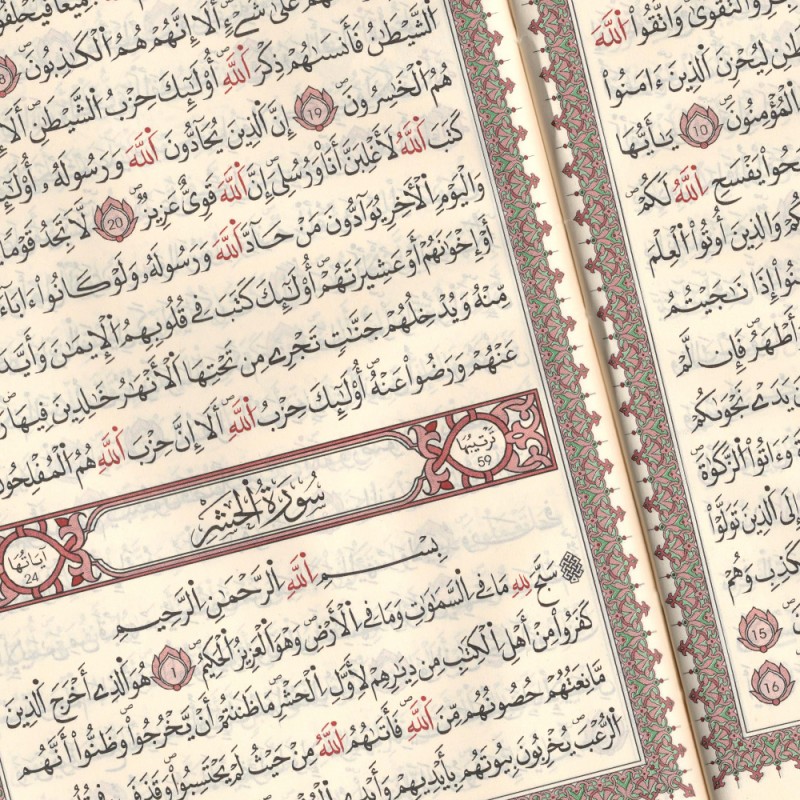 والتقوى واتقوا الله
ليحزن الذين ءامنوا
المؤمنون 10 يأيها
يفسح الله لكم
والذين أوتوا العلم
إذا نجيتم
أطهر فإن لم
يدے نجويكم
وءاتوا الزكوة
إلى الذين تولوا
وهم
15
16
جميعا
على شےء الا إنهم هم الكذبون 18
الشيطن فأنسيهم ذكر الله أولئك حزب الشيطن ألا
هم الخسرون 19 إن الذين يحادون الله ورسوله
كتب الله لأغلبن أنا ورسلي إن الله قوي عزيز 20 لا تجد قوما
واليوم الأخر يوادون من حاد الله ورسوله ولو كانوا
أو إخونهم أو عشيرتهم أولئك كتب في قلوبهم الإيمن
منه ويدخلهم جنت تجرے من تحتها الأنهر خلدين فيها
عنهم ورضوا عنه أولئك حزب الله ألا إن حزب الله هم
ترتيبها 59
سورة الحشر
آياتها 24
بسم الله الرحمن الرحيم
سبح لله ما في السموت وما في الأرض وهو العزيز الحكيم 1 هو الذے أخرج الذين
كفروا من أهل الكتب من ديرهم لأول الحشر ما ظننتم أن يخرجوا وظنوا أنهم
مانعتهم حصونهم من الله فأتيهم الله من حيث لم يحتسبوا وقذف في
الرعب يخربون بيوتهم بأيديهم